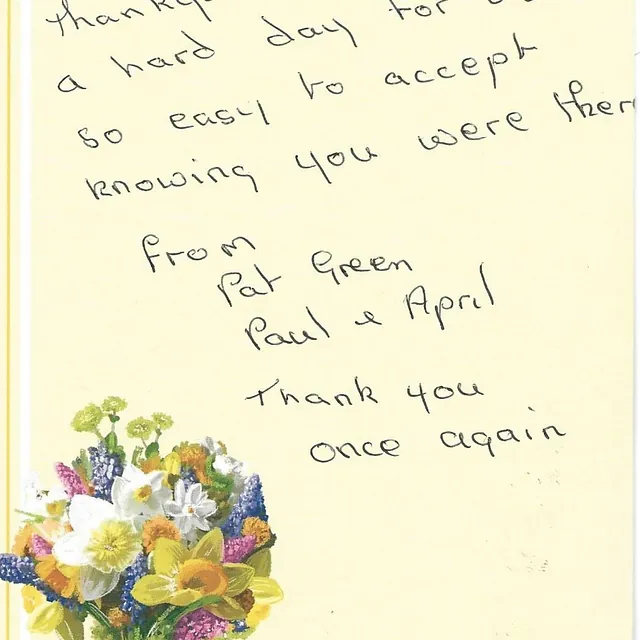 a hard day for
so easy to accept
knowing you were
from
Pat Green
Paul & April
Thank you
once again